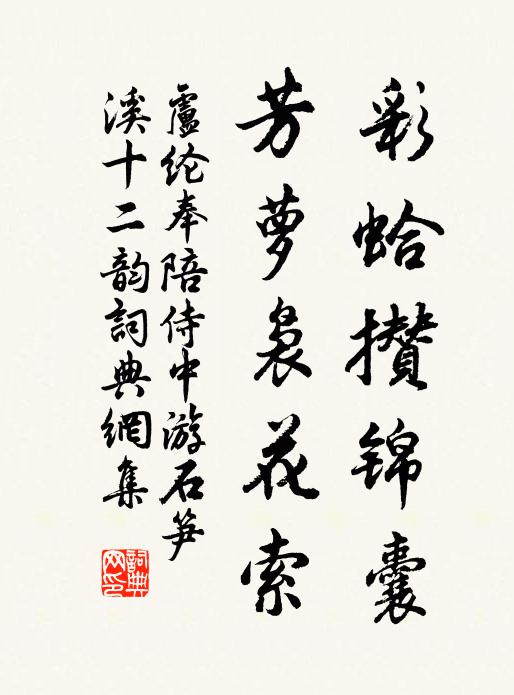 彩蛤攢锦囊
芳萝袅花索
盧纶奉陪侍中游石笋
溪十二韵詞典網集
詞典网印